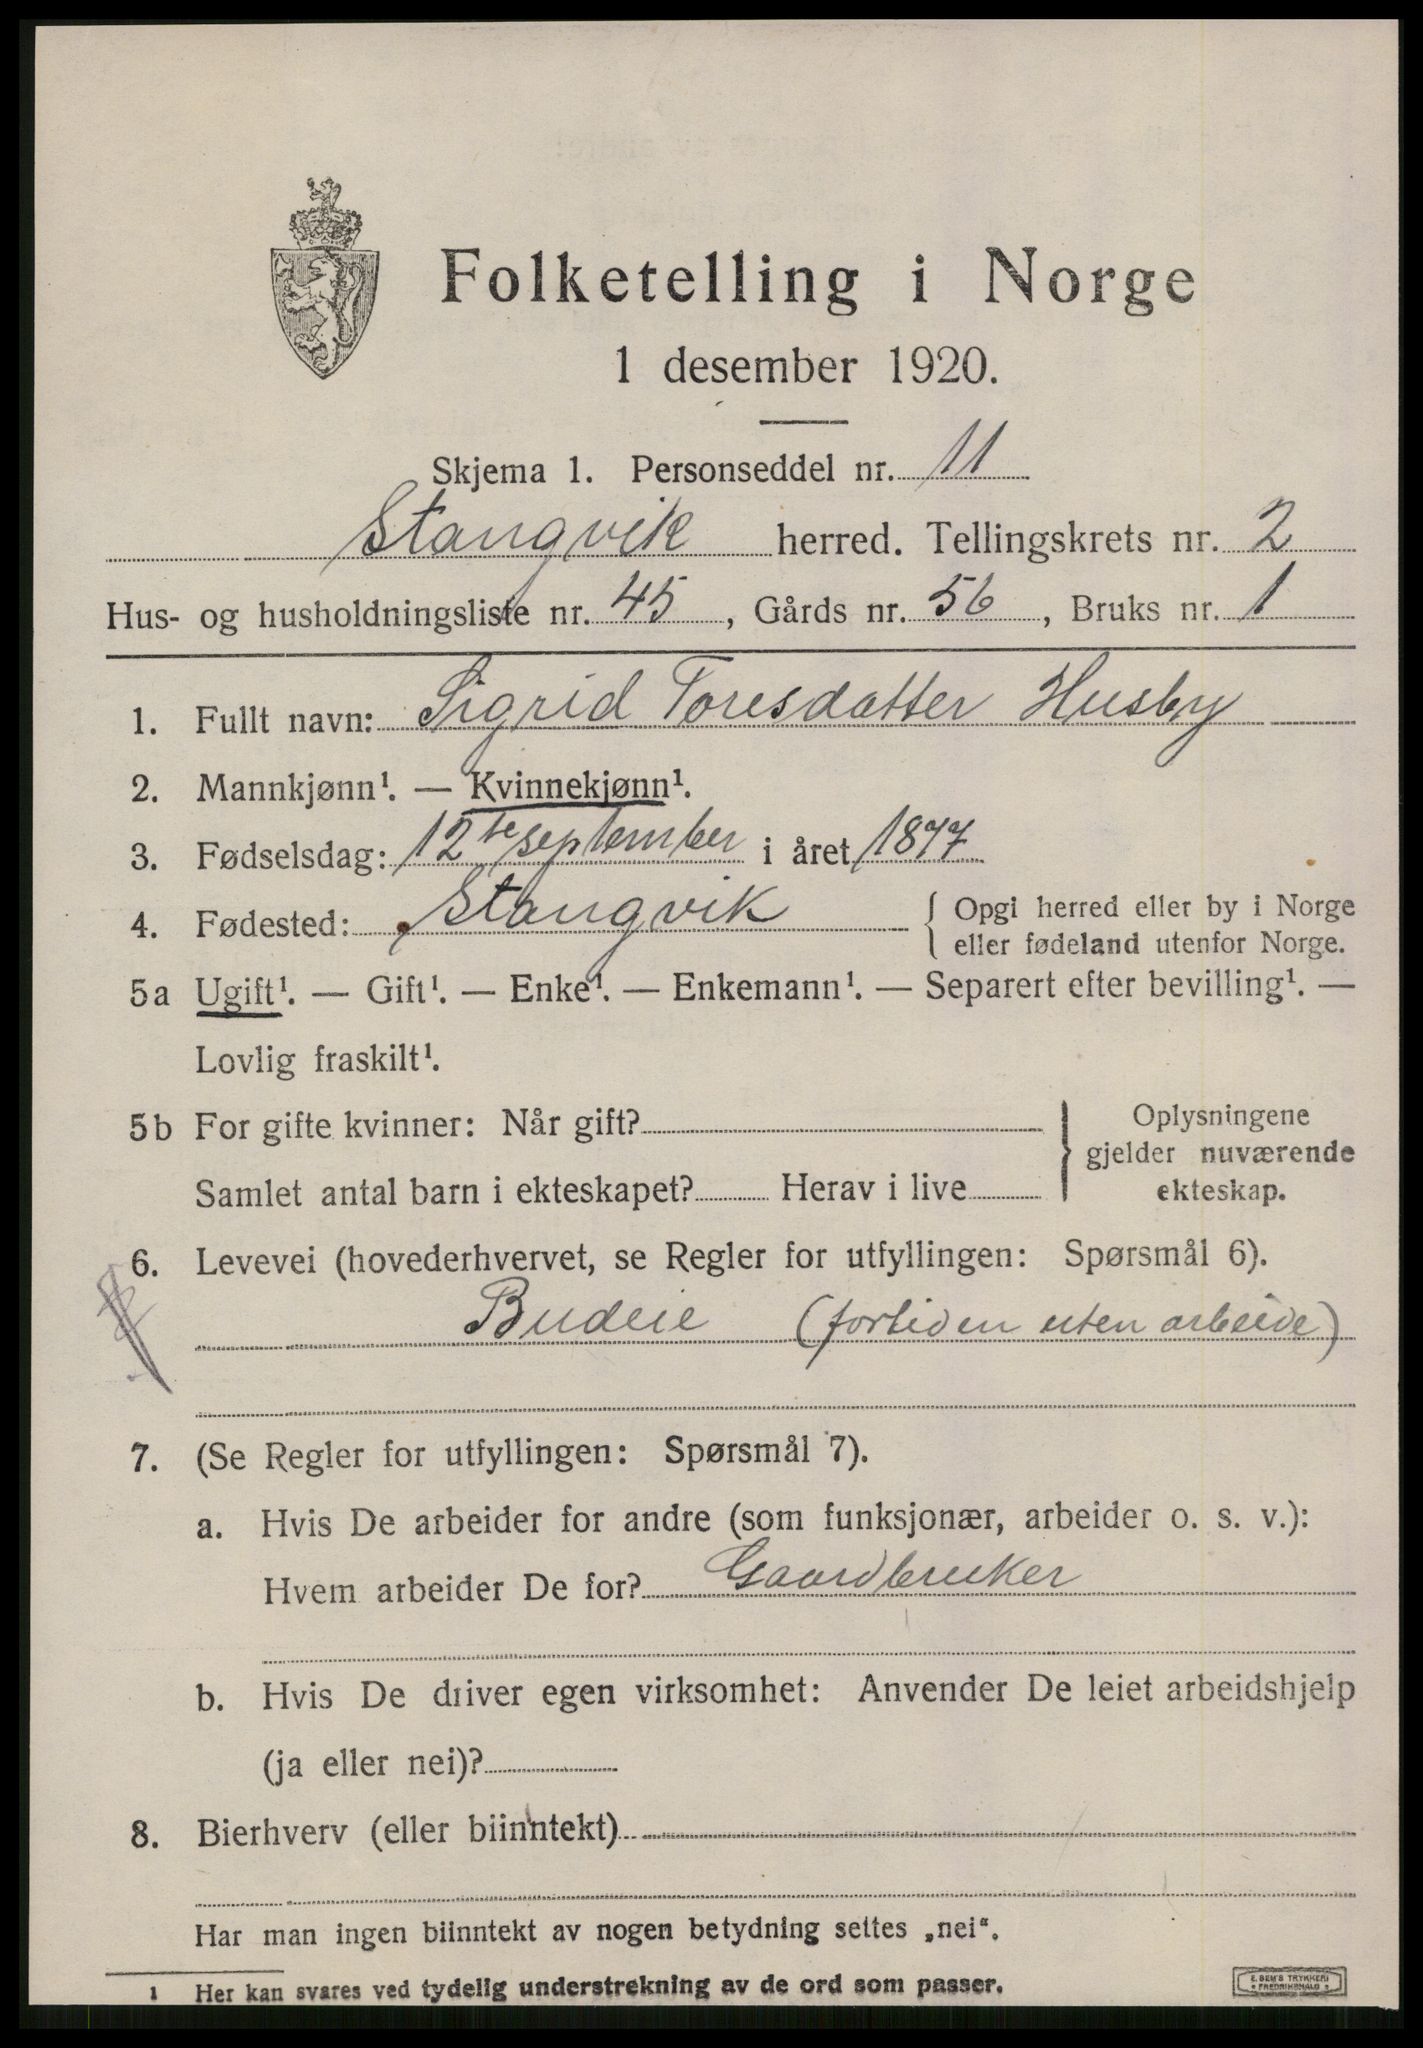 Folketelling i Norge
1 desember 1920.
Skjema 1. Personseddel nr. 11
Stangvik herred. Tellingskrets nr. 2
Hus- og husholdningsliste nr. 45, Gårds nr. 56, Bruks nr. 1
1. Fullt navn: Sigrid Toresdatter Husby
2. Mannkjønn¹. — Kvinnekjønn¹.
3. Fødselsdag: 12te september i året 1877
4. Fødested: Stangvik { Opgi herred eller by i Norge
eller fødeland utenfor Norge.
5a Ugift¹. — Gift¹. — Enke¹. — Enkemann¹. — Separert efter bevilling¹. —
Lovlig fraskilt¹.
5b For gifte kvinner: Når gift? } Oplysningene
gjelder nuværende
Samlet antal barn i ekteskapet? Herav i live ekteskap.
6. Levevei (hovederhvervet, se Regler for utfyllingen: Spørsmål 6).
Budeie (fortiden uten arbeide)
7. (Se Regler for utfyllingen: Spørsmål 7).
a. Hvis De arbeider for andre (som funksjonær, arbeider o. s. v.):
Hvem arbeider De for? Gaardbruker
b. Hvis De driver egen virksomhet: Anvender De leiet arbeidshjelp
(ja eller nei)?
8. Bierhverv (eller biinntekt)
Har man ingen biinntekt av nogen betydning settes „nei“.
1 Her kan svares ved tydelig understrekning av de ord som passer.
E. SEM'S TRYKKERI
FREDRIKSHALD